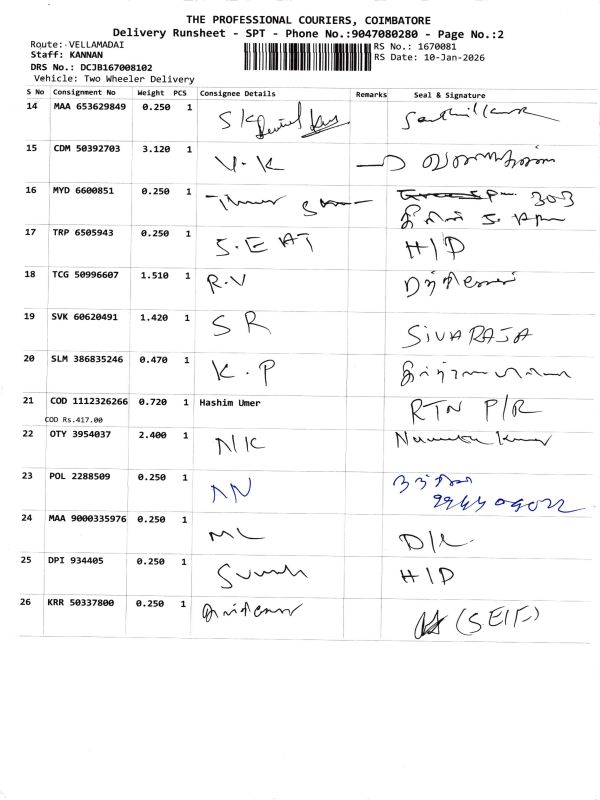 THE PROFESSIONAL COURIERS, COIMBATORE
Delivery Runsheet - SPT - Phone No.:9047080280 - Page No.:2
Route: VELLAMADAI
RS No.: 1670081
Staff: KANNAN
RS Date: 10-Jan-2026
DRS No.: DCJB167008102
Vehicle: Two Wheeler Delivery
S No Consignment No Weight PCS Consignee Details Remarks Seal & Signature
14 MAA 653629849 0.250 1 SK
15 CDM 50392703 3.120 1 V.K
16 MYD 6600851 0.250 1 303
17 TRP 6505943 0.250 1 S.E AT H/D
18 TCG 50996607 1.510 1 R.V
19 SVK 60620491 1.420 1 S R SIVARAJA
20 SLM 386835246 0.470 1 K.P
21 COD 1112326266 0.720 1 Hashim Umer RTN P/R
COD Rs.417.00
22 OTY 3954037 2.400 1 N/K
23 POL 2288509 0.250 1 NN
24 MAA 9000335976 0.250 1 ML D/L
25 DPI 934405 0.250 1 H/D
26 KRR 50337800 0.250 1 (SELF)